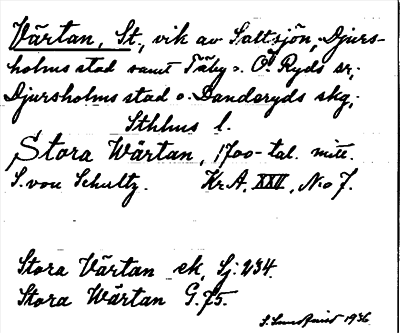 Värtan, St., vik av Saltsjön, Djurs-
holms stad samt Täby o. Ö. Ryds sr,
Djursholms stad o. Danderyds skg,
Sthlms l.
Stora Wärtan, 1700-tal. mitt.
S. von Schultz. Kr.A. XXII, No 7.
Stora Värtan ek, Sj: 234.
Stora Wärtan G. 75.
1936